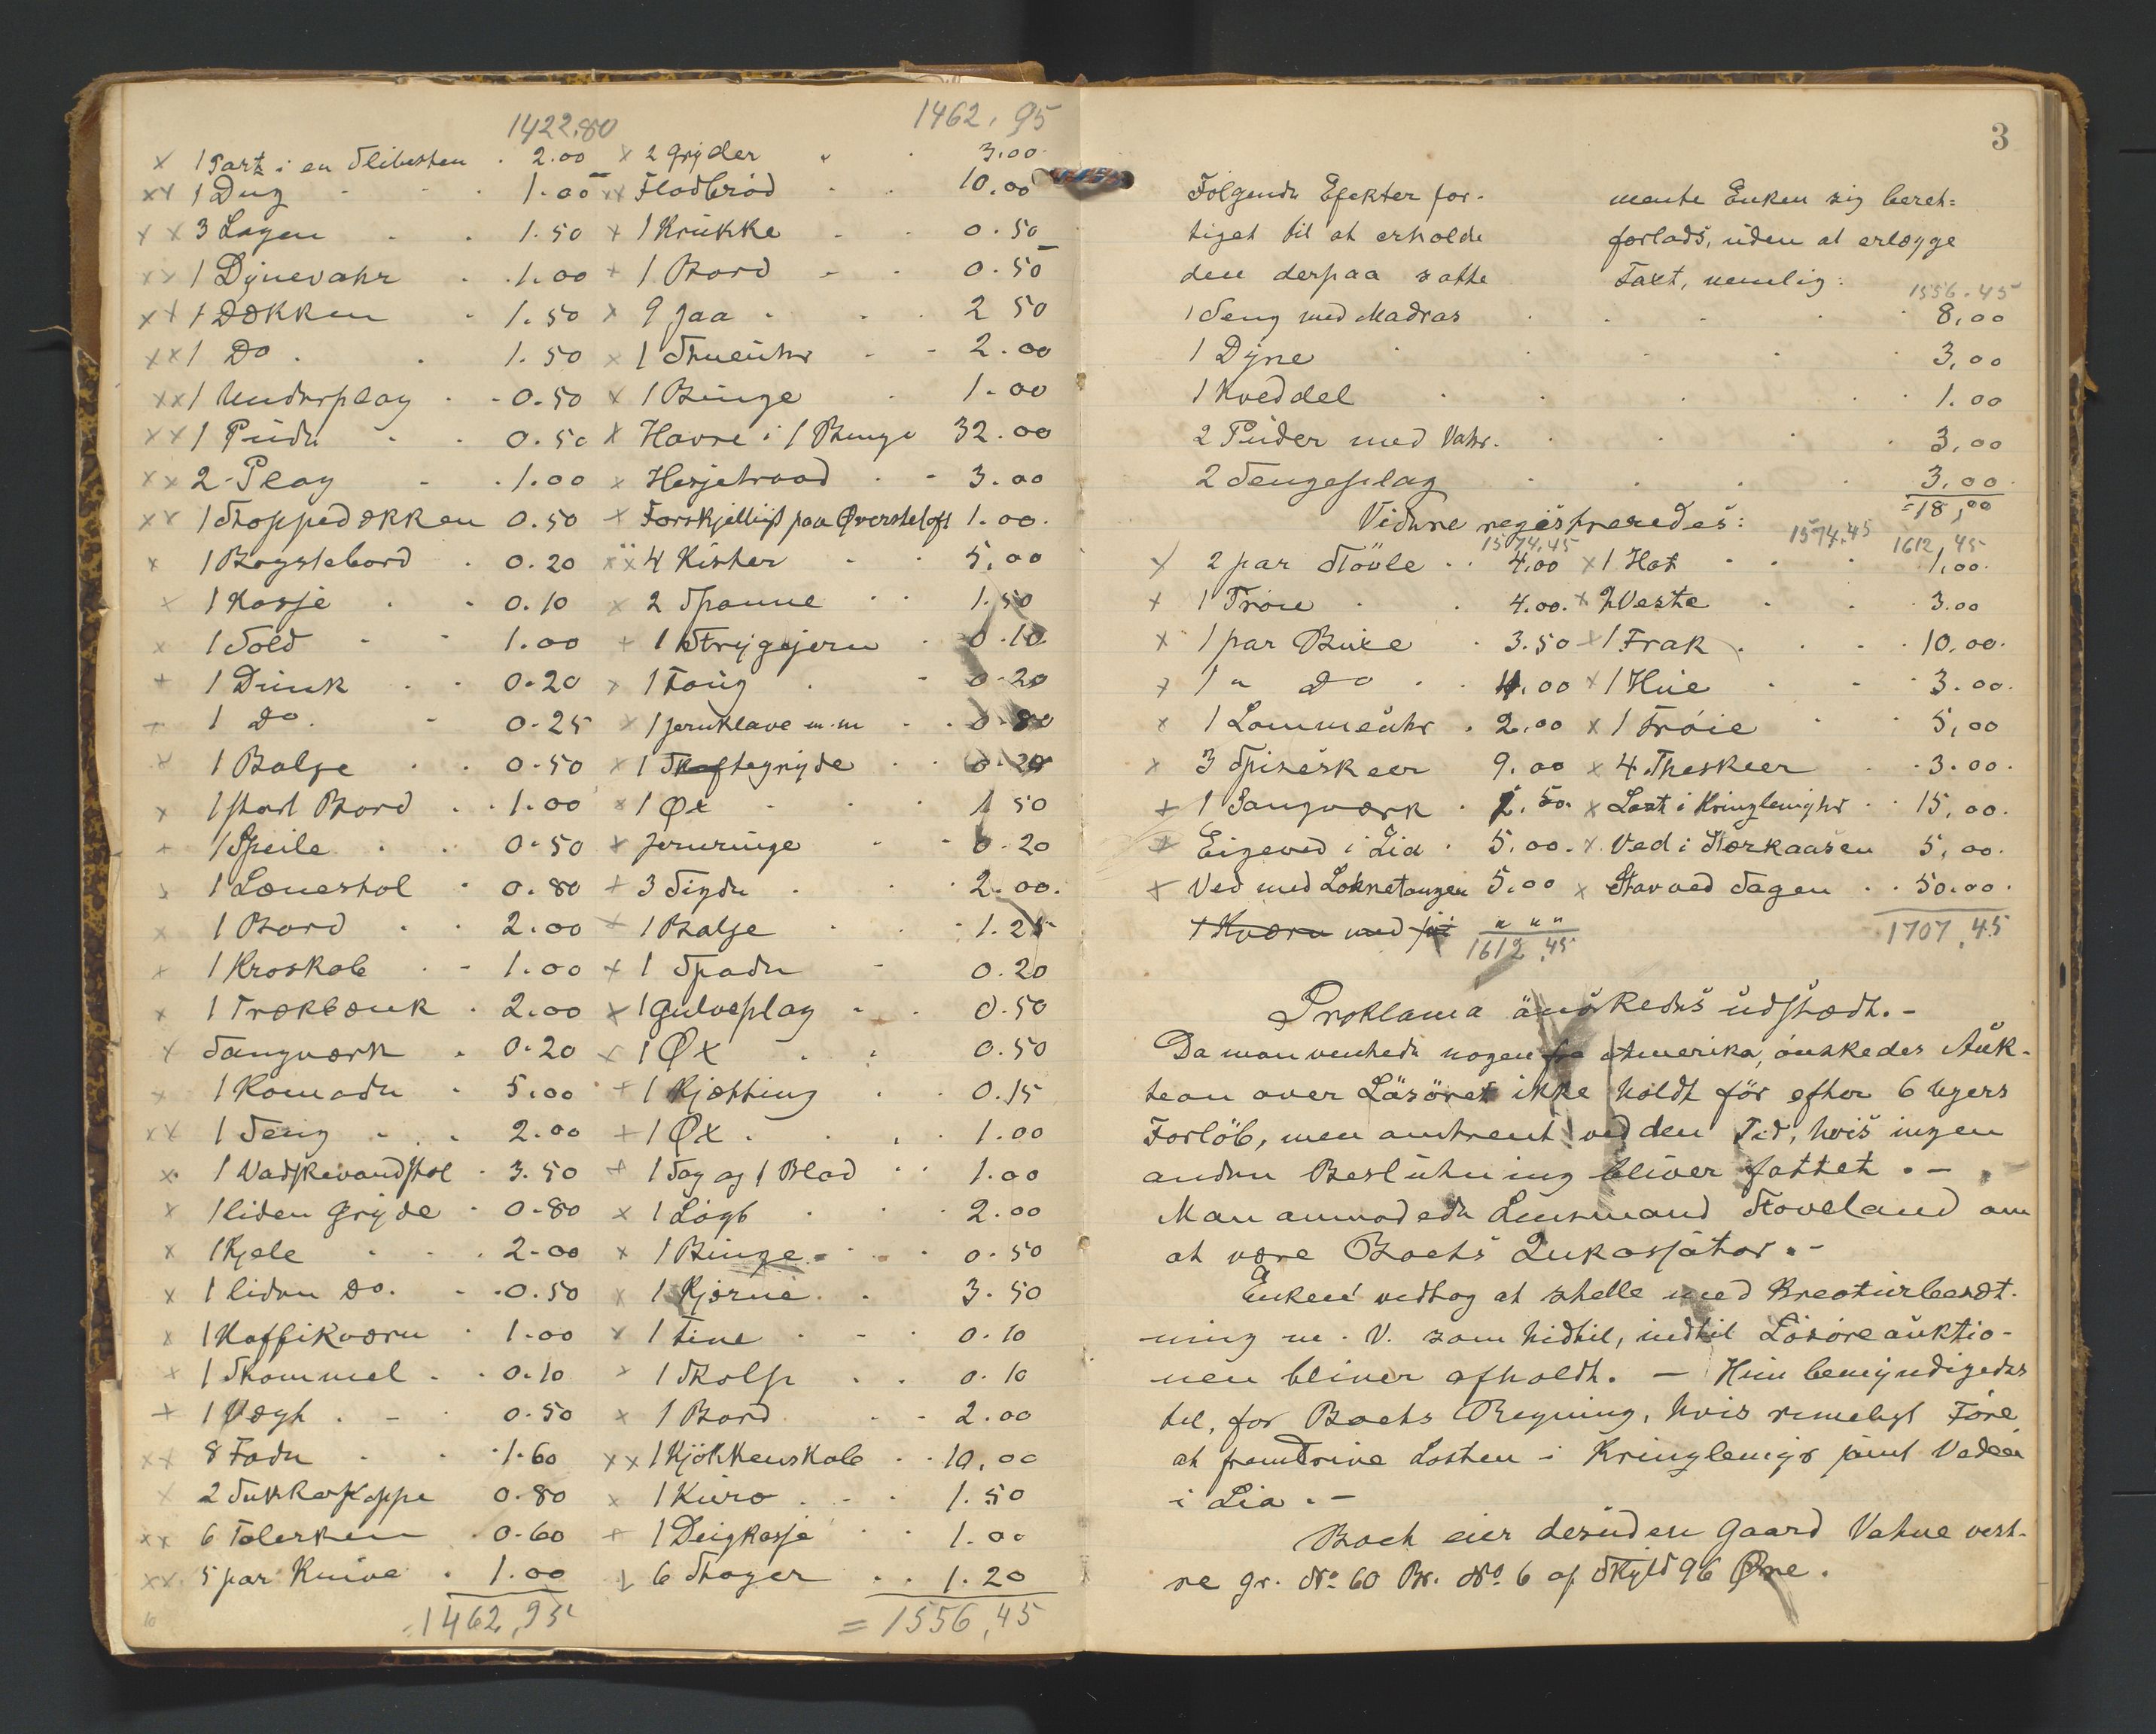 1422.80
x 1 Part i en Slibesten . 2.00
xx 1 Dug . 1.00
xx 3 Lagen . 1.50
xx 1 Dynevahr . 1.00
xx 1 Dækken . 1.50
xx 1 Do . 1.50
xx 1 Underplag . 0.50
xx 1 Pude . 0.50
xx 2 Plag . 1.00
xx 1 Stoppedækken 0.50
x 1 Bagstebord . 0.20
x 1 Kasse . 0.10
x 1 Sold . 1.00
+ 1 Dunk . 0.20
+ 1 Do. . 0.25
x 1 Balje . 0.50
x 1 stort Bord . 1.00
+ 1 Speile . 0.50
x 1 Lænestol . 0.80
x 1 Bord . 2.00
x 1 Kroskab . 1.00
x 1 Trækbænk . 2.00
x Sangværk . 0.20
x 1 Komode . 5.00
xx 1 Seng . 2.00
x 1 Vadskevandstol . 3.50
x 1 liden Gryde . 0.80
x 1 Kjele . 2.00
x 1 liden Do. . 0.50
x 1 Kaffikværn . 1.00
+ 1 Skammel . 0.10
+ 1 Vægt . 0.50
xx 8 Fade . 1.60
x 2 Sukkerkoppe 0.80
xx 6 Talerken . 0.60
xx 5 par Knive . 1.00
1462,95
1462,95
x 2 Gryder " . 3.00
xx Fladbröd . 10.00
+ 1 Krukke . 0.50
+ 1 Bord . 0.50
x 9 Jaa . 2 50
x 1 Stueuhr . 2.00
x 1 Binge . 1.00
x Havre i 1 Binge 32.00
x Hesjetraad . 3.00
+ Forskjelligt paa Øversteloft 1.00.
xx 4 Kister . 5,00
x 2 Spanne . 1.50
+ 1 Strygejern . 0.10
x 1 Toug . 0.20
x 1 Jernklave m.m . 0.80
x 1 Skaftegryde . 0.20
x 1 Øx . 1 50
+ Jernringe . 0.20
+ 3 Sigde . 2.00.
+ 1 Balje . 1.25
+ 1 Spade . 0.20
x 1 Gulveplag . 0.50
x 1 Øx . 0.50
+ 1 Kjætting . 0.15
+ 1 Øx . 1.00
+ 1 Sag og 1 Blad . 1.00
x 1 Lögb . 2.00
x 1 Binge . 0.50
x 1 Kjærne . 3.50
x 1 Tine . 0.10
x 1 Skolp . 0.10
x 1 Bord . 2.00
xx 1 Kjökkenskab . 10.00
x 1 Kurv . 1.50
+ 1 Deigkasse . 1.00
x 6 Stager . 1.20
= 1556,45
3
Fölgende Efekter for- mente Enken sig beret-
tiget til at erholde forlods, uden at erlægge
den derpaa satte Taxt, nemlig:
1556.45
1 Seng med Madras . 8,00
1 Dyne . 3,00
1 Kveddel . 1.00
2 Puder med Vahr. . 3,00
2 Sengeplag . 3,00
=18,00
Videre registreredes:
1574.45 1574.45 1612,45
x 2 par Stövle . 4.00 x 1 Hat . 1,00.
+ 1 Tröie . 4.00. x 2 Veste . 3.00
x 1 par Buxe . 3.50 x 1 Frak . 10,00.
x 1 " Do . 4.00 x 1 Hue . 3.00.
x 1 Lommeuhr . 2.00 x 1 Tröie . 5,00
x 3 Spiseskeer 9.00 x 4 Theskeer . 3.00.
+ 1 Sangværk . 2.50. x Last i Kringlemyhr . 15,00.
x Eigeved i Lia . 5.00. x Ved i Storkaasen 5,00.
x Ved med Loknetangen 5.00 x Stav ved Sagen . 50.00.
1 Kværn med " " "
1612,45 1707,45
Proklama önskedes udstædt. -
Da man ventede nogen fra Amerika, önskedes Auk-
tion over Lösöret ikke holdt för efter 6 Ugers
Forlöb, men omtrent ved den Tid, hvis ingen
anden Beslutning bliver fattet. -
Man anmodede Lensmand Stoveland om
at være Boets Inkassatør. -
Enken vedtog at stelle med Kreaturberet-
ning m. V. som hidtil, indtil Lösöreauktio-
nen bliver afholdt. - Hun bemyndigedes
til, for Boets Regning, hvis rimeligt Före
at fremdrive Lasten i Kringlemyr samt Veden
i Lia. -
Boet eier desuden Gaard Vatne vest-
re gr. No 60 Br. No 6 af Skyld 96 Øre.